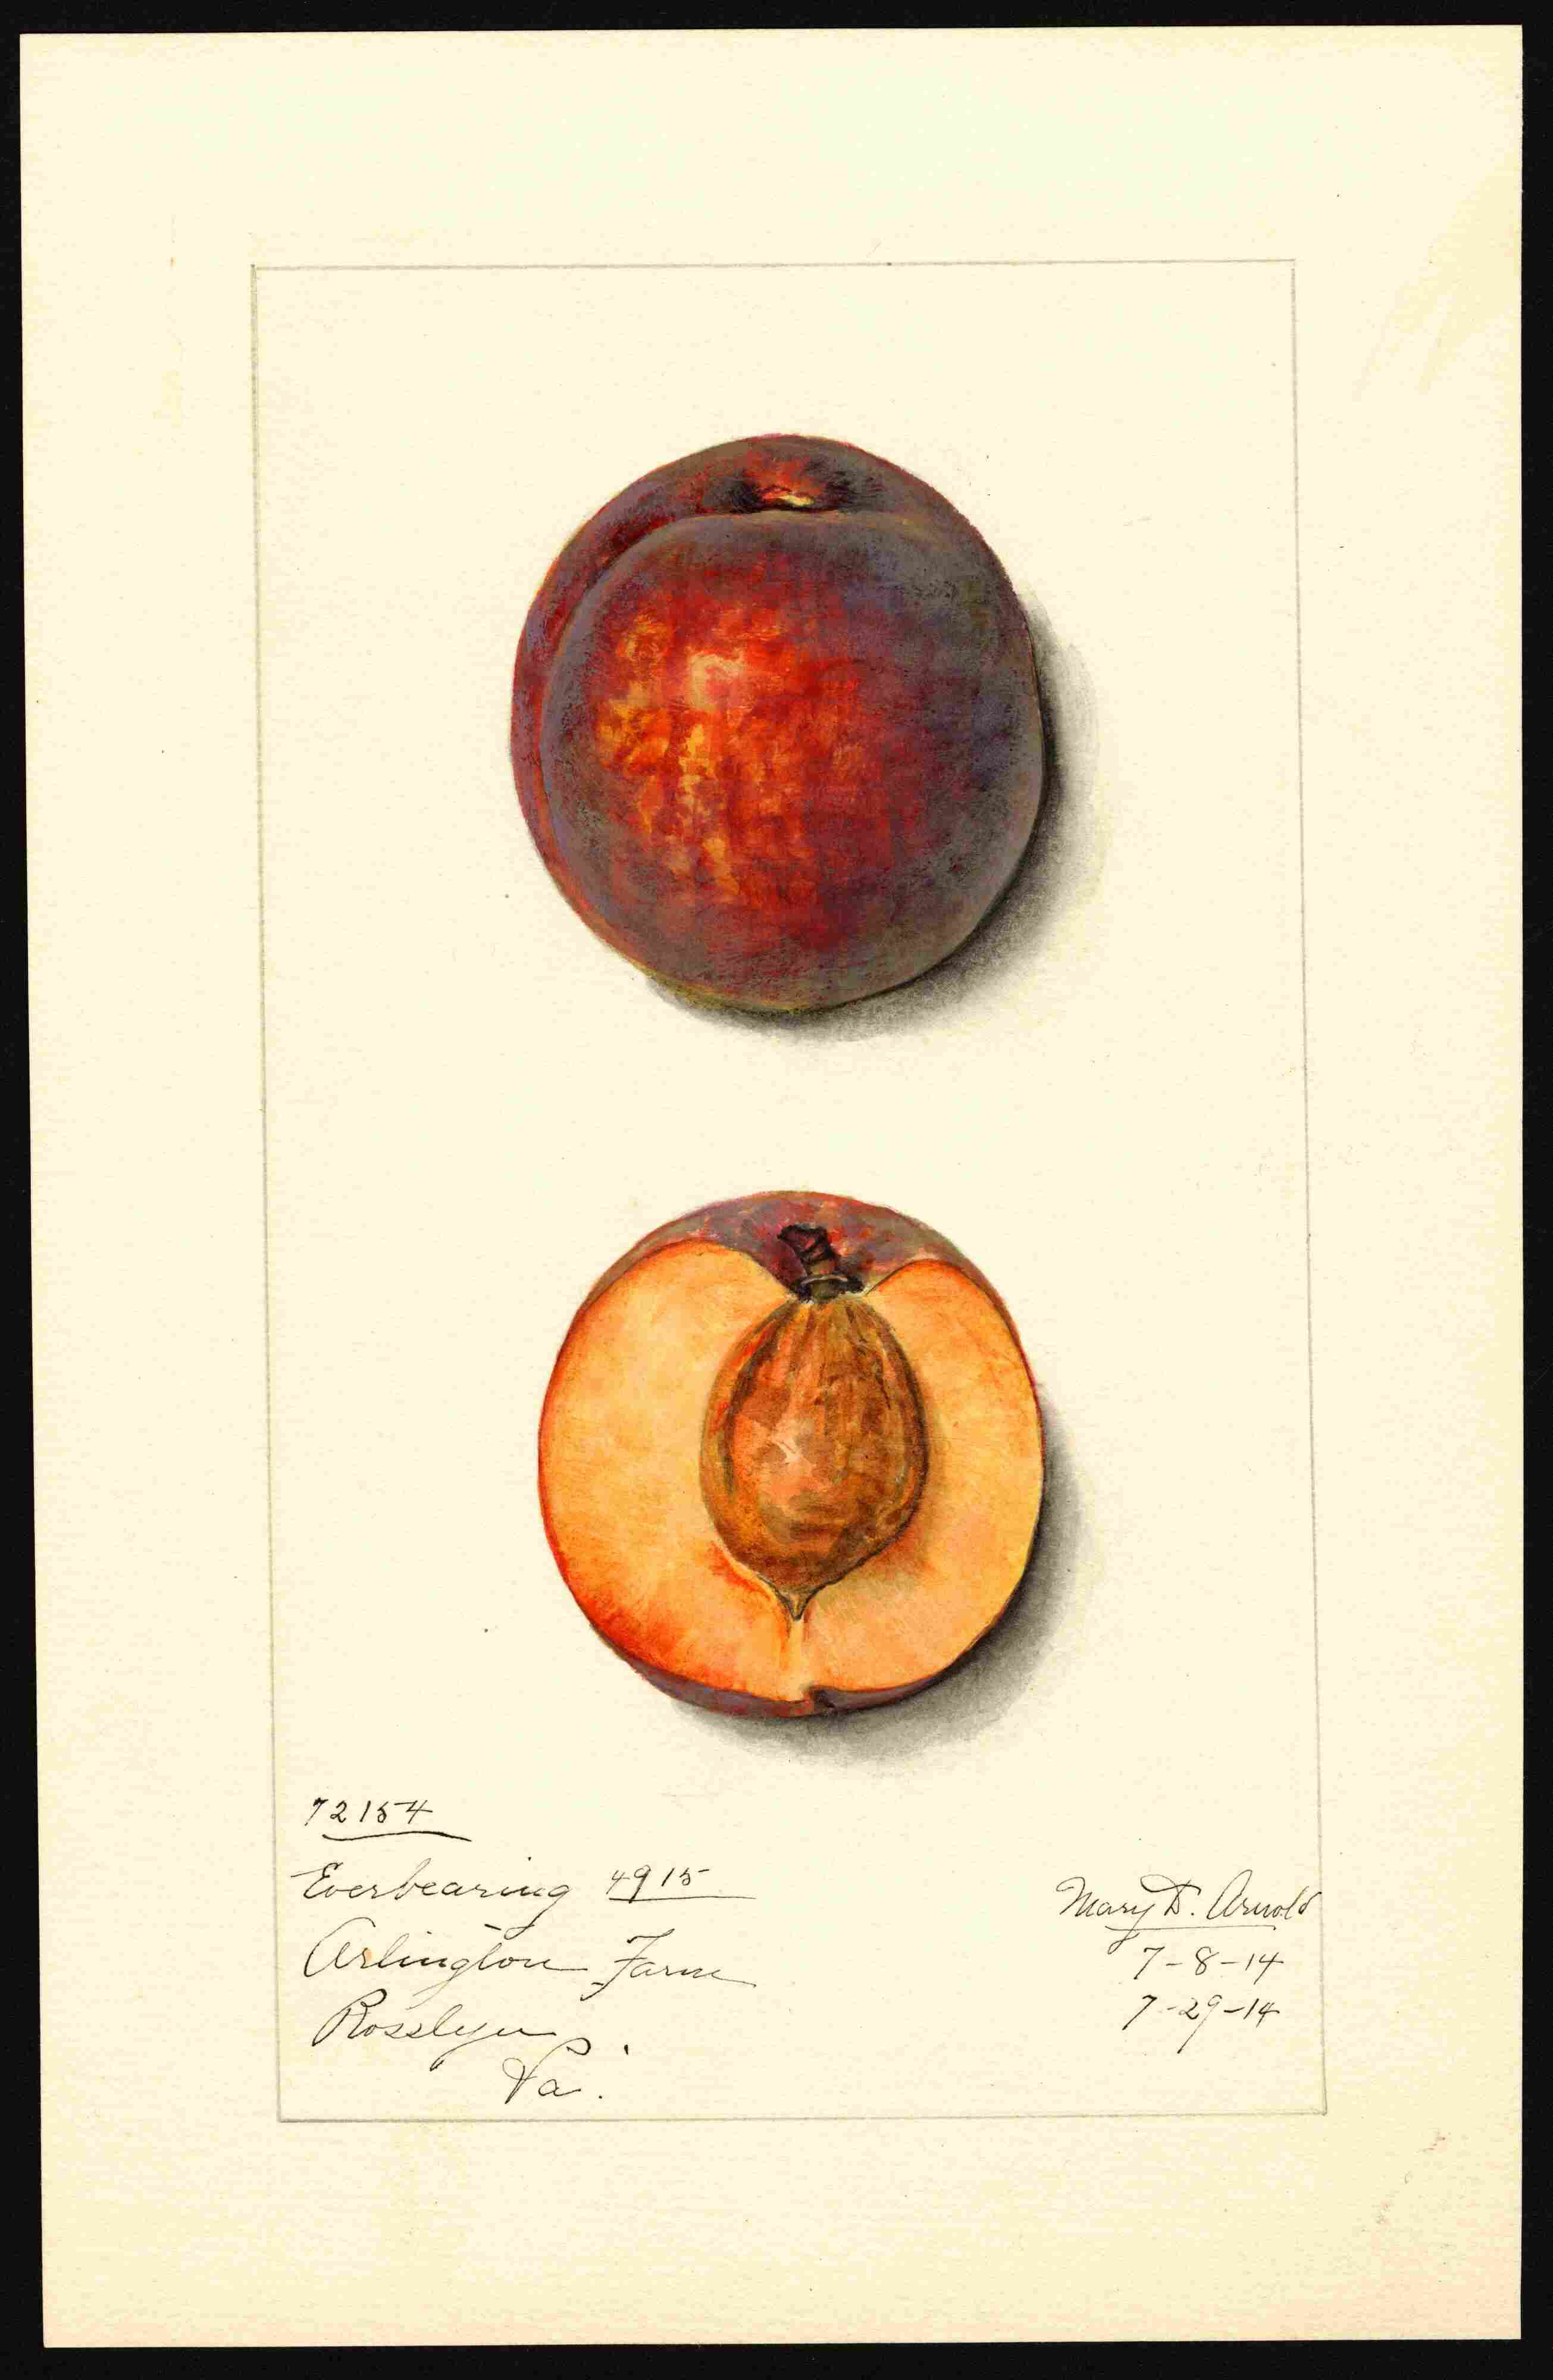 72154
Everbearing 4915
Arlington Farm
Rosslyn
Va.
Mary D. Arnold
7-8-14
7-29-14